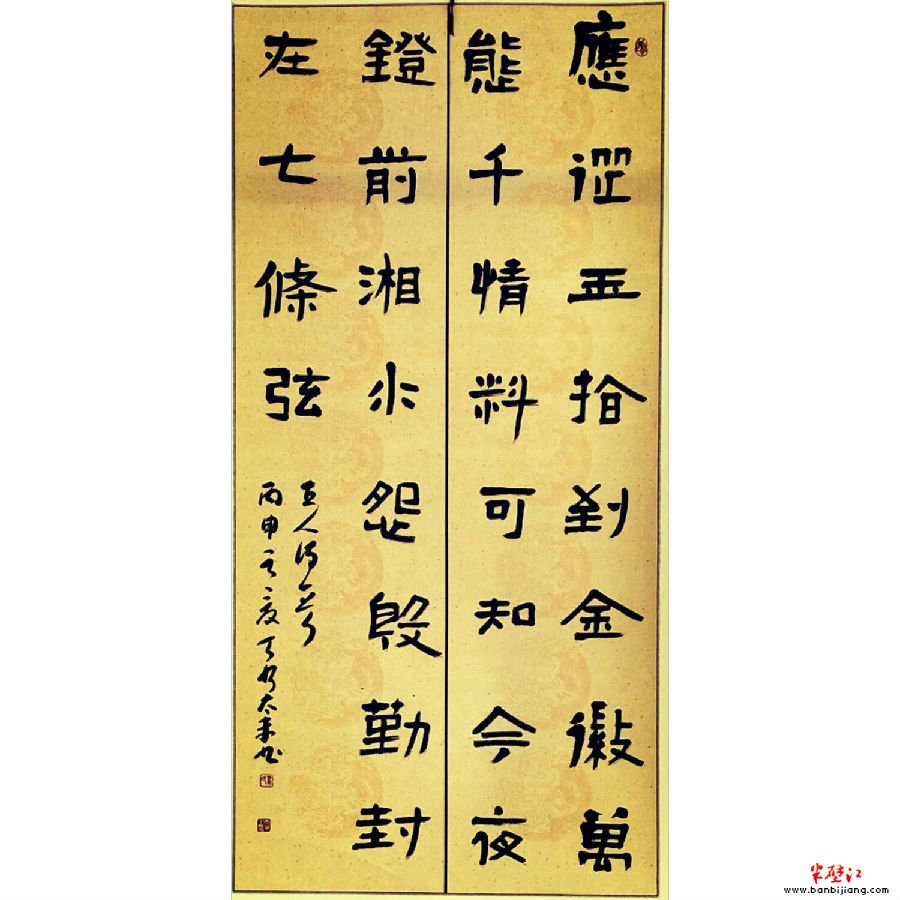 應從玉指到金徽萬
態千情料可知今夜
鐙前湘水怨殷勤封
在七條弦
丙申之夏
半壁江
www.banbijiang.com